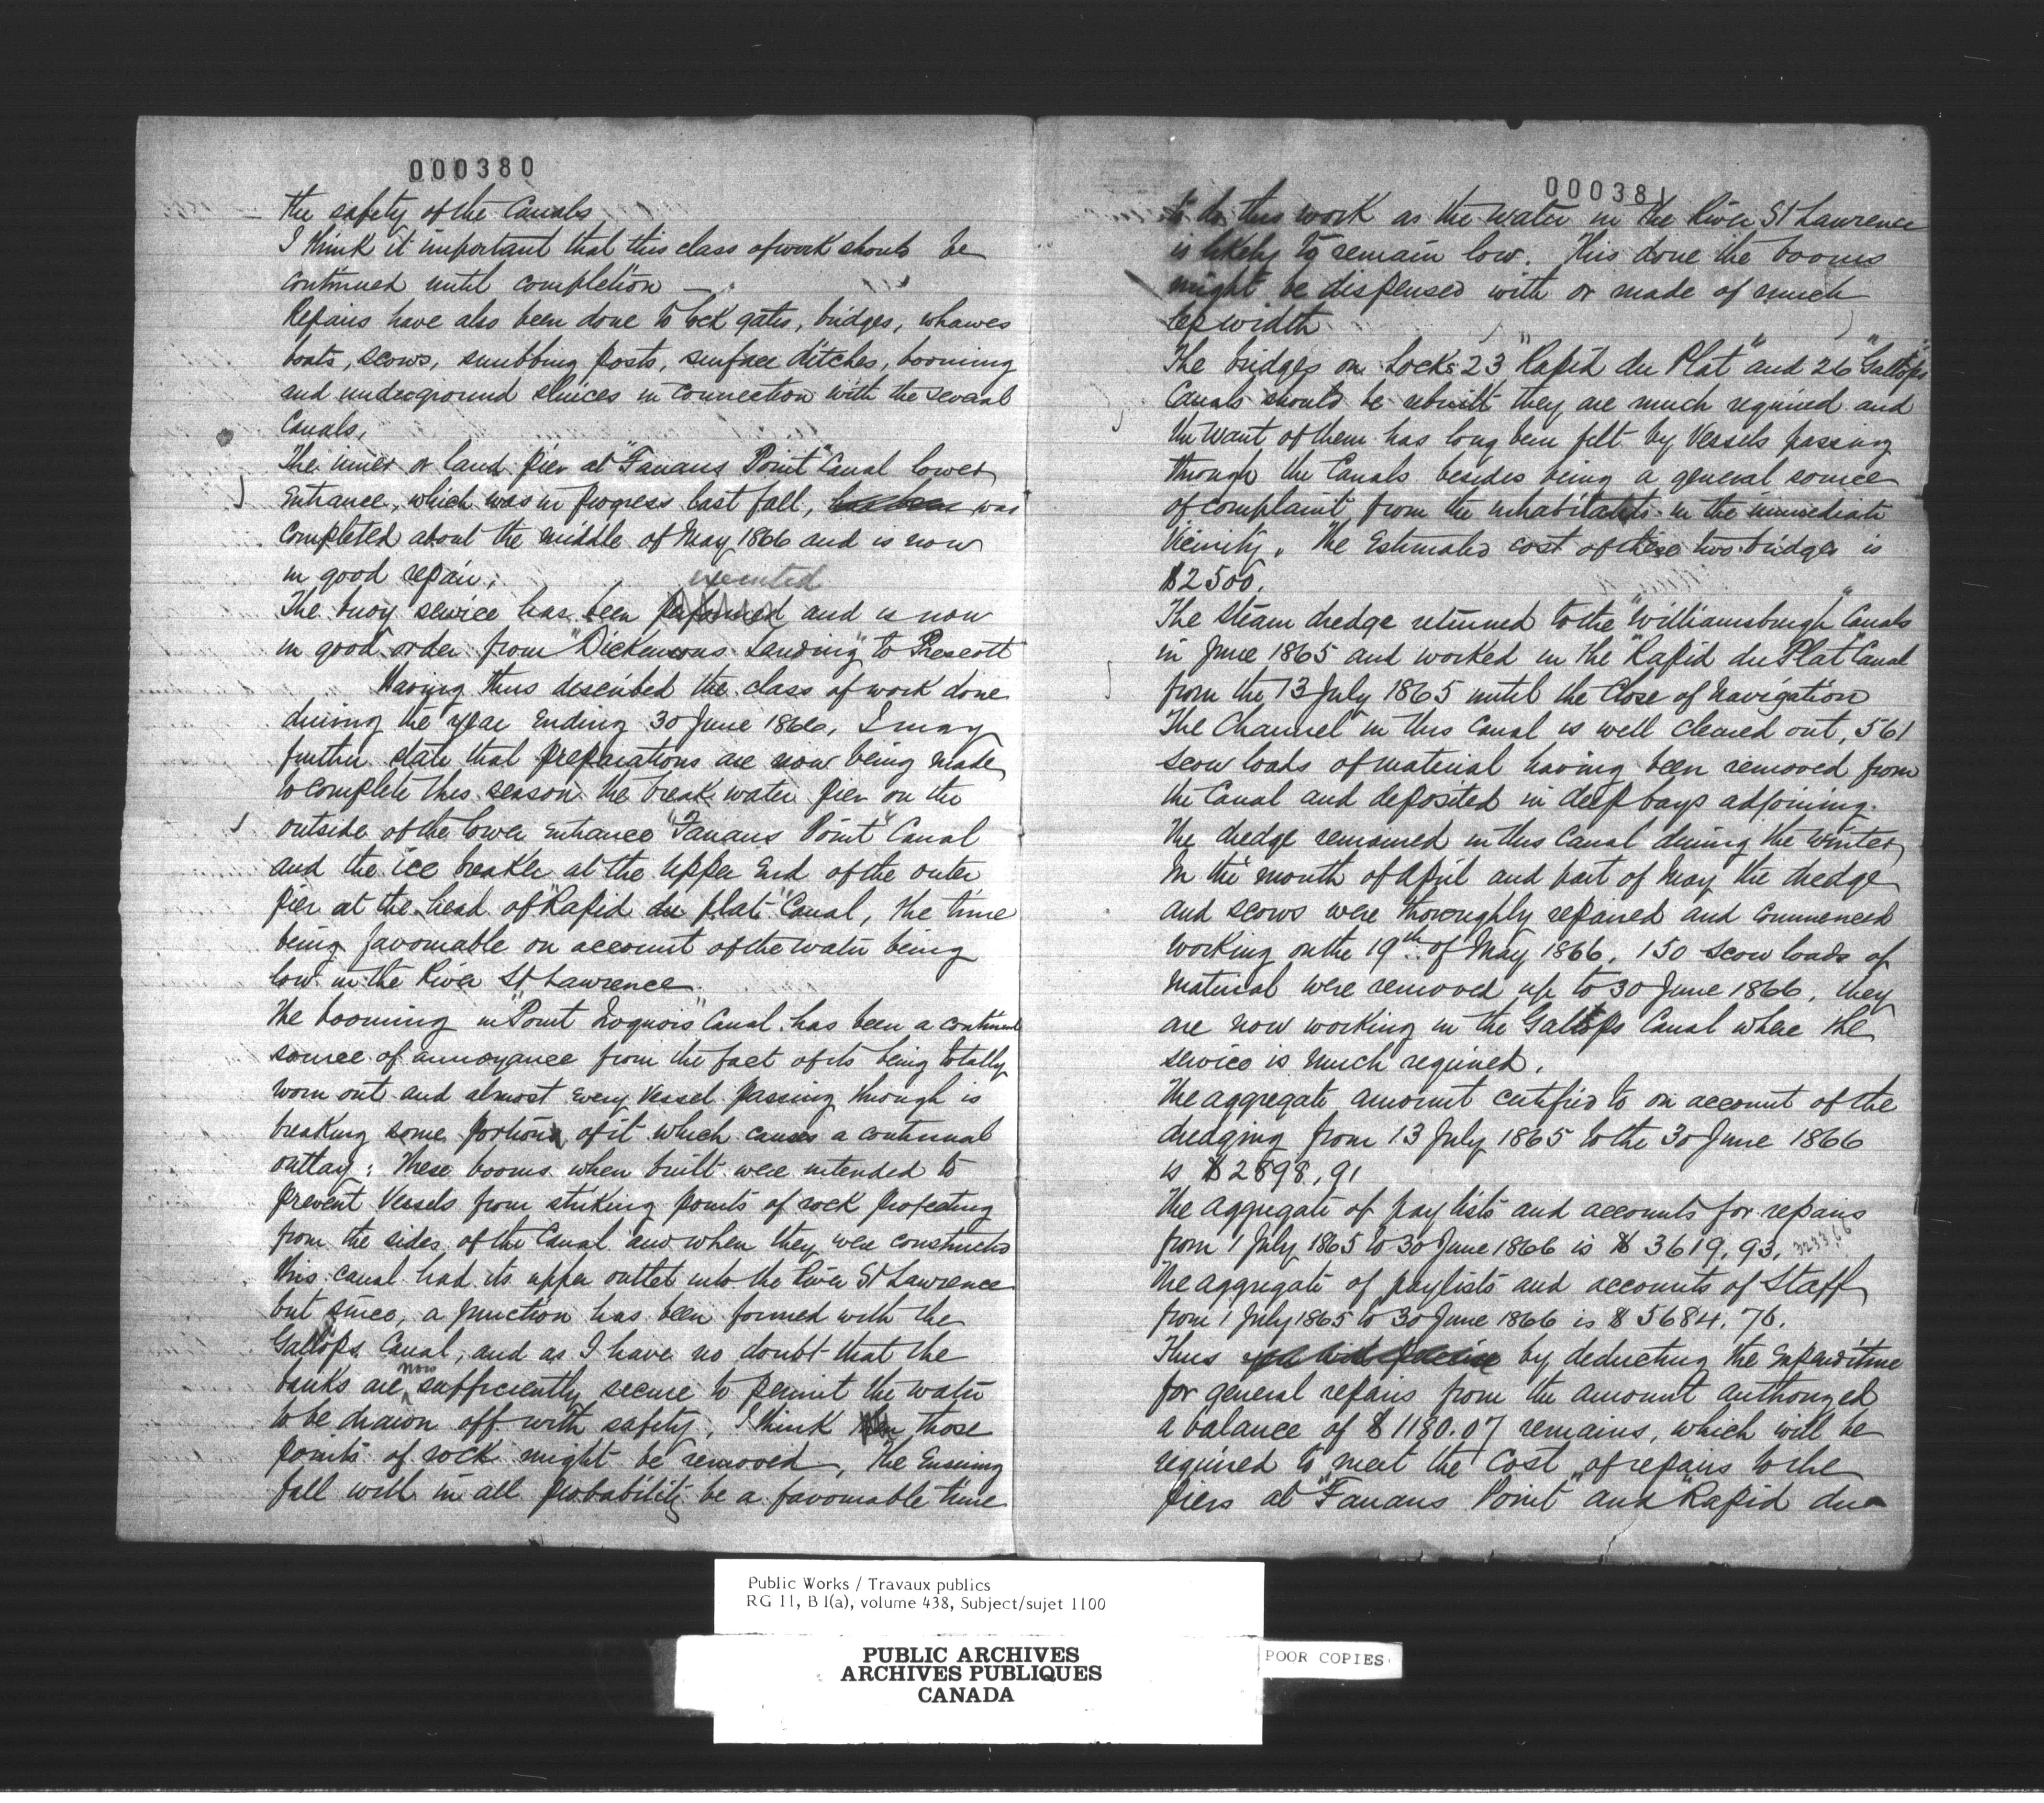 000380
the safety of the Canals
I think it important that this class of work should be
continued until completion —
Repairs have also been done to lock gates, bridges, wharves
boats, scows, snubbing posts, surface ditches, booming
and underground sluices in connection with the several
Canals,
The inner or land pier at "Farrans Point" Canal lower
Entrance, which was in progress last fall, has been was
completed about the middle of May 1866 and is now
in good repair,
executed
The buoy service has been performed and is now
in good order from "Dickensons Landing" to Prescott
Having thus described the class of work done
during the year Ending 30 June 1866, I may
further state that preparations are now being made
to complete this season the break water pier on the
outside of the lower Entrance "Farrans Point" Canal
and the ice breaker at the Upper End of the outer
pier at the head of "Rapid du plat" Canal, the time
being favourable on account of the water being
low in the River St Lawrence
The booming in "Point Iroquois" Canal has been a continual
source of annoyance from the fact of its being totally
worn out and almost Every Vessel passing through is
breaking some portions of it which causes a continual
outlay: These booms when built were intended to
prevent Vessels from striking points of rock projecting
from the sides of the Canal and when they were constructed
this canal had its upper outlet into the River St Lawrence
but since, a junction has been formed with the
Gallops Canal, and as I have no doubt that the
now
banks are sufficiently secure to permit the water
to be drawn off with safety, I think those
points of rock might be removed, The Ensuing
fall will in all probability be a favourable time
000381
to do this work as the water in the River St Lawrence
is likely to remain low. This done the booms
might be dispensed with or made of much
less width
The bridges on Locks 23 "Rapid du Plat" and 26 "Gallops"
Canals should be rebuilt they are much required and
the want of them has long been felt by Vessels passing
through the Canals besides being a general source
of complaint from the inhabitants in the immediate
Vicinity. The Estimated cost of these two bridges is
$2500.
The Steam dredge returned to the "Williamsburgh" Canals
in June 1865 and worked in the "Rapid du Plat" Canal
from the 13 July 1865 until the Close of Navigation
The Channel in this Canal is well cleaned out, 561
scow loads of material having been removed from
the Canal and deposited in deep bays adjoining.
The dredge remained in this Canal during the Winter
In the month of April and part of May the dredge
and scows were thoroughly repaired and commenced
working on the 19th of May 1866, 150 scow loads of
material were removed up to 30 June 1866, they
are now working in the Gallops Canal where the
service is much required.
The aggregate amount certified to on account of the
dredging from 13 July 1865 to the 30 June 1866
is $2898,91
The aggregate of pay lists and accounts for repairs
from 1 July 1865 to 30 June 1866 is $3619,93,
The aggregate of paylists and accounts of Staff
from 1 July 1865 to 30 June 1866 is $5684.76.
Thus you will perceive by deducting the Expenditure
for general repairs from the amount authorized
a balance of $1180.07 remains, which will be
required to meet the Cost of repairs to the
piers at "Farrans Point" and "Rapid du
Public Works / Travaux publics
RG 11, B 1(a), volume 438, Subject/sujet 1100
PUBLIC ARCHIVES
ARCHIVES PUBLIQUES
CANADA
POOR COPIES